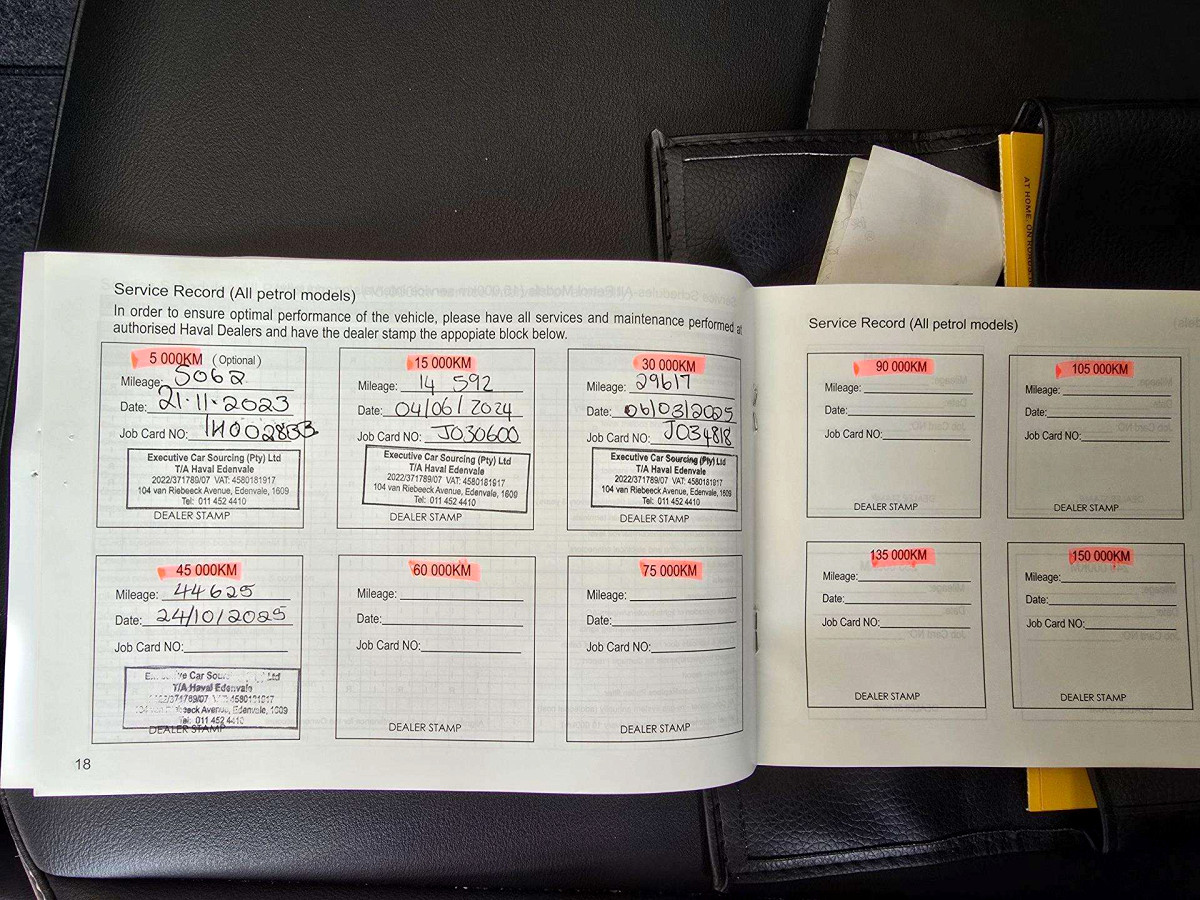 Service Record (All petrol models)
In order to ensure optimal performance of the vehicle, please have all services and maintenance performed at
authorised Haval Dealers and have the dealer stamp the appopiate block below.
5 000KM (Optional)
Mileage: 5062
Date: 21·11·2023
Job Card NO:
Executive Car Sourcing (Pty) Ltd
T/A Haval Edenvale
2022/371789/07 VAT: 4580181917
104 van Riebeeck Avenue, Edenvale, 1609
Tel: 011 452 4410
DEALER STAMP
15 000KM
Mileage: 14 592
Date: 04/06/2024
Job Card NO: J030600
Executive Car Sourcing (Pty) Ltd
T/A Haval Edenvale
2022/371789/07 VAT: 4580181917
104 van Riebeeck Avenue, Edenvale, 1609
Tel: 011 452 4410
DEALER STAMP
30 000KM
Mileage: 29617
Date: 06/03/2025
Job Card NO: J034818
Executive Car Sourcing (Pty) Ltd
T/A Haval Edenvale
2022/371789/07 VAT: 4580181917
104 van Riebeeck Avenue, Edenvale, 1609
Tel: 011 452 4410
DEALER STAMP
45 000KM
Mileage: 44625
Date: 24/10/2025
Job Card NO:
Car
T/A Haval Edenvale
Avenue, Edenvale, 1609
Tel: 011 452 4410
DEALER STAMP
60 000KM
Mileage:
Date:
Job Card NO:
DEALER STAMP
75 000KM
Mileage:
Date:
Job Card NO:
DEALER STAMP
18
Service Record (All petrol models)
90 000KM
Mileage:
Date:
Job Card NO:
DEALER STAMP
105 000KM
Mileage:
Date:
Job Card NO:
DEALER STAMP
135 000KM
Mileage:
Date:
Job Card NO:
DEALER STAMP
150 000KM
Mileage:
Date:
Job Card NO:
DEALER STAMP
AT HOME. ON ROADS